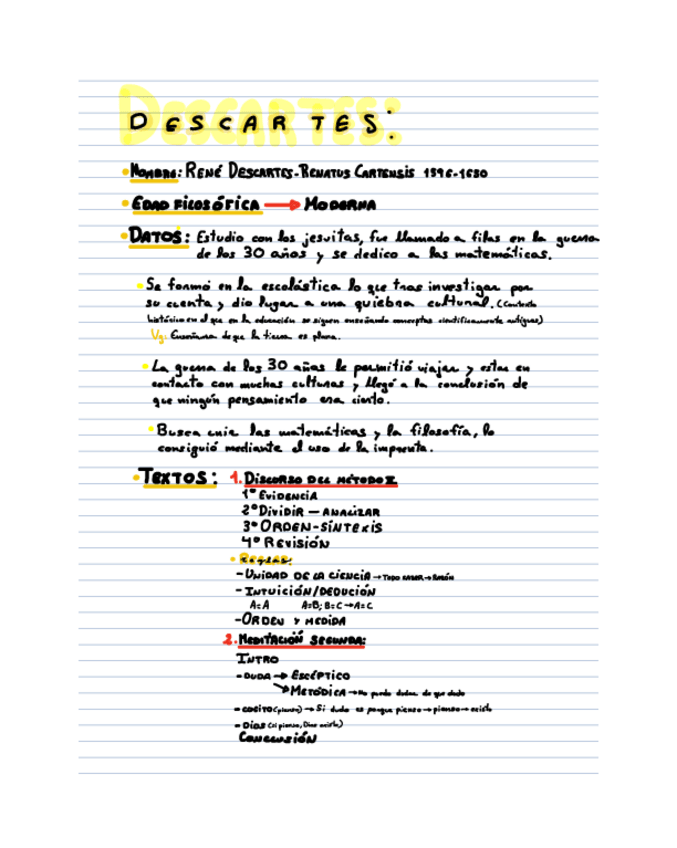 DESCARTES:
• NOMBRE: RENÉ DESCARTES-RENATUS CARTENSIS 1596-1650
• EDAD FILOSÓFICA → MODERNA
• DATOS: Estudio con los jesuitas, fue llamado a filas en la guerra
de los 30 años y se dedico a las matemáticas.
• Se formó en la escolástica lo que tras investigar por
su cuenta y dio lugar a una quiebra cultural. (Contexto
histórico en el que en la educación se siguen enseñando conceptos científicamente antiguos)
Vg: Enseñanza de que la tierra es plana.
• La guerra de los 30 años le permitió viajar y estar en
contacto con muchas culturas y llegó a la conclusión de
que ningún pensamiento era cierto.
• Busca unir las matemáticas y la filosofía, lo
consiguió mediante el uso de la imprenta.
• TEXTOS: 1. DISCURSO DEL MÉTODO II
1º EVIDENCIA
2º DIVIDIR — ANALIZAR
3º ORDEN-SÍNTEXIS
4º REVISIÓN
• Reglas:
- UNIDAD DE LA CIENCIA → TODO SABER → RAZÓN
- INTUICIÓN/DEDUCIÓN
A=A A=B; B=C → A=C
- ORDEN Y MEDIDA
2. MEDITACIÓN SEGUNDA:
INTRO
- DUDA → ESCÉPTICO
→ METÓDICA → No puedo dudar de que dudo
- COGITO (pienso) → Si dudo es porque pienso → pienso → existo
- DIOS (si pienso, Dios existe)
CONCLUSIÓN